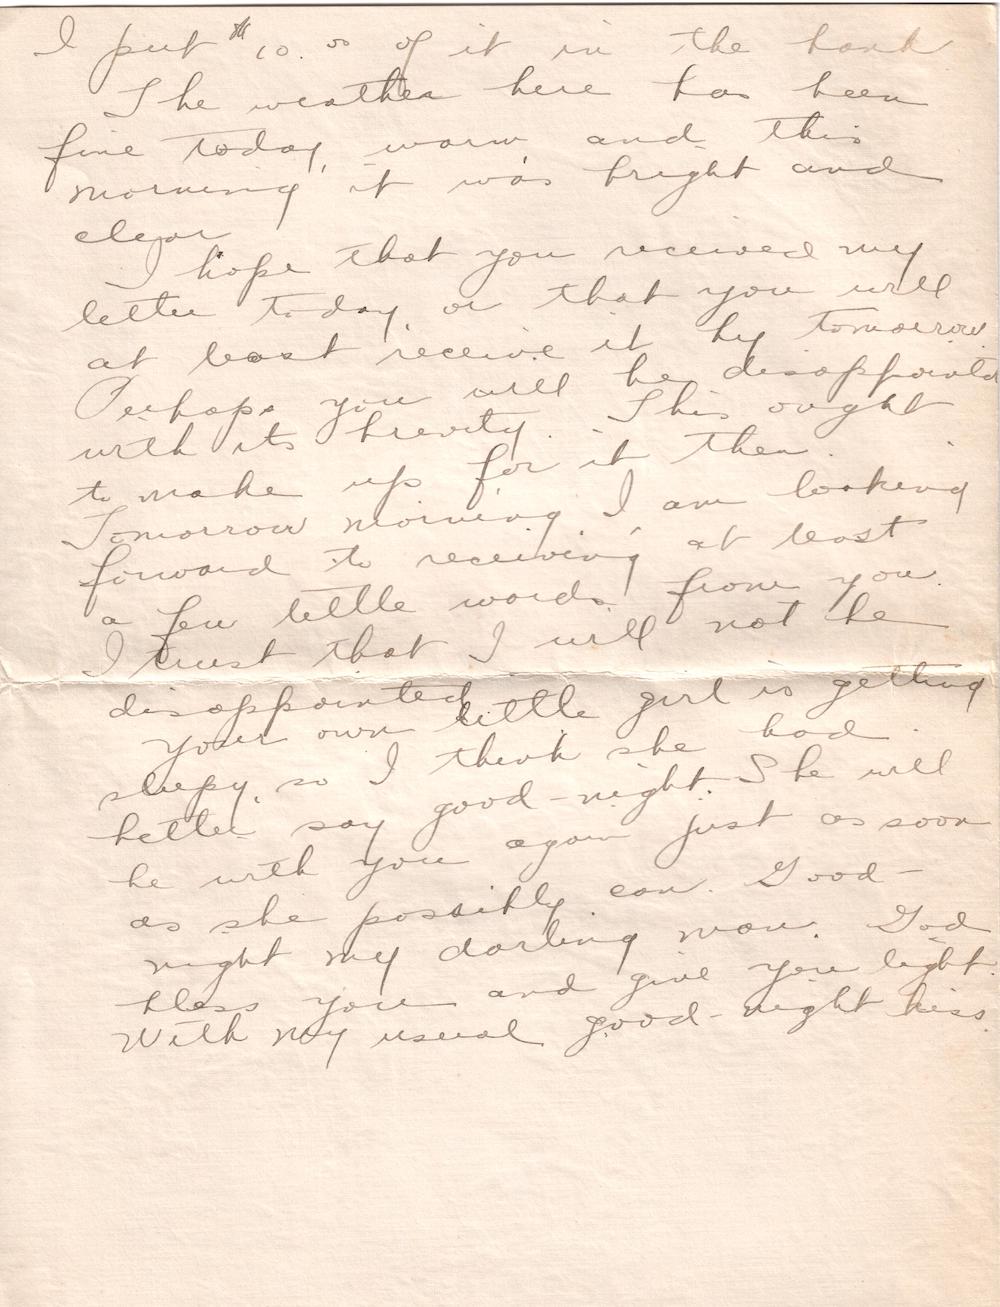 I put $10.00 of it in the bank
The weather here has been
fine today, warm and this
morning it was bright and
clear
I hope that you received my
letter today, or that you will
at least receive it by tomorrow.
Perhaps you will be disappointed
with its brevity. This ought
to make up for it then.
Tomorrow morning, I am looking
forward to receiving at least
a few little words from you.
I trust that I will not be
disappointed.
Your own little girl is getting
sleepy, so I think she had
better say good-night. She will
be with you again just as soon
as she possibly can. Good-
night my darling man. God
bless you and give you light.
With my usual good-night kiss.